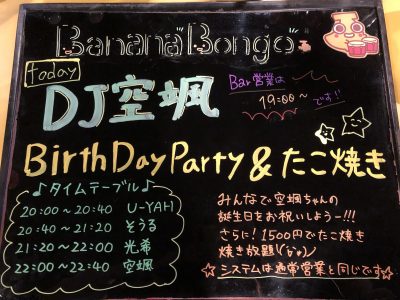 Banana Bongo
today
DJ空颯
Bar営業は
19:00~
です!!
BirthDay Party & たこ焼き
♪タイムテーブル♪
20:00~20:40 U-YAH
20:40~21:20 そうる
21:20~22:00 光希
22:00~22:40 空颯
みんなで空颯ちゃんの
誕生日をお祝いしよう~!!!
さらに!1500円でたこ焼き
焼き放題
☆システムは通常営業と同じです☆